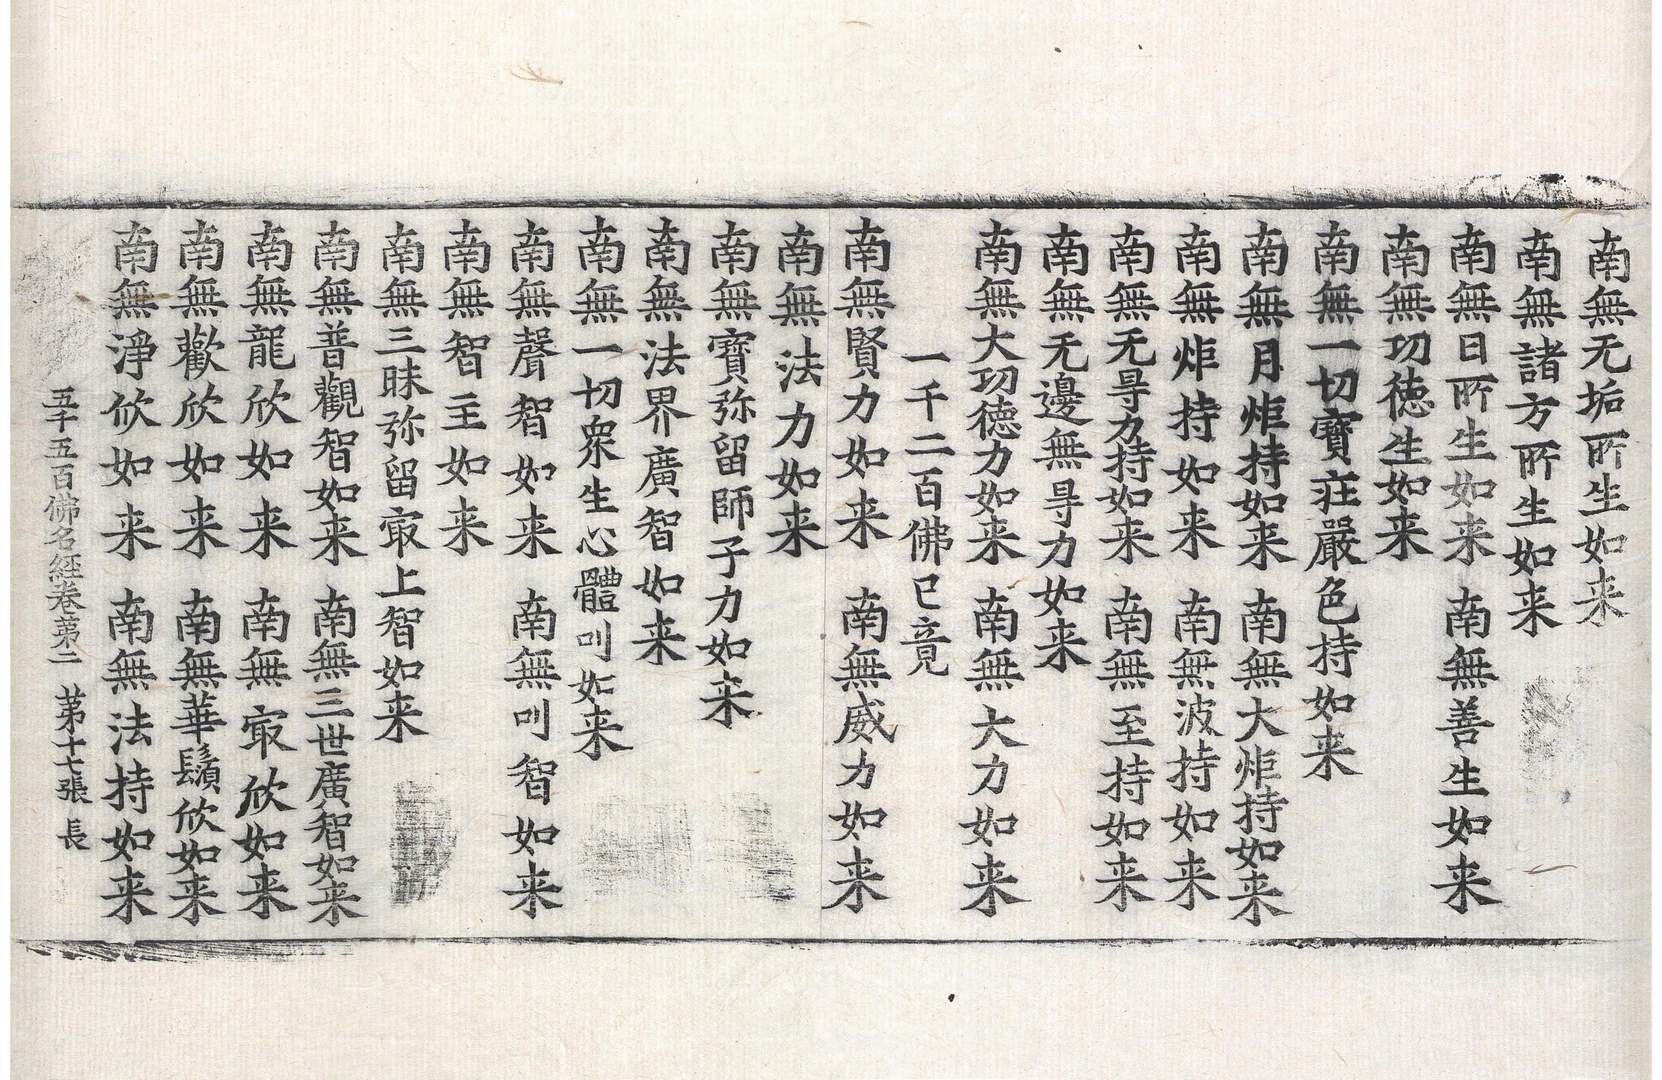 南無无垢所生如来
南無諸方所生如来
南無日所生如来 南無善生如来
南無功徳生如来
南無一切寶庄嚴色持如来
南無月炬持如来 南無大炬持如来
南無炬持如来 南無波持如来
南無无㝵力持如来 南無至持如来
南無无邊無㝵力如来
南無大功德力如来 南無大力如来
一千二百佛已竟
南無賢力如来 南無威力如来
南無法力如来
南無寶弥留師子力如来
南無法界廣智如来
南無一切衆生心體叫如来
南無聲智如来 南無叫智如来
南無智主如来
南無三昧弥留㝡上智如来
南無普觀智如来 南無三世廣智如来
南無龍欣如来 南無㝡欣如来
南無歡欣如来 南無華鬚欣如来
南無淨欣如来 南無法持如来
五千五百佛名經卷第二 第十七張 長